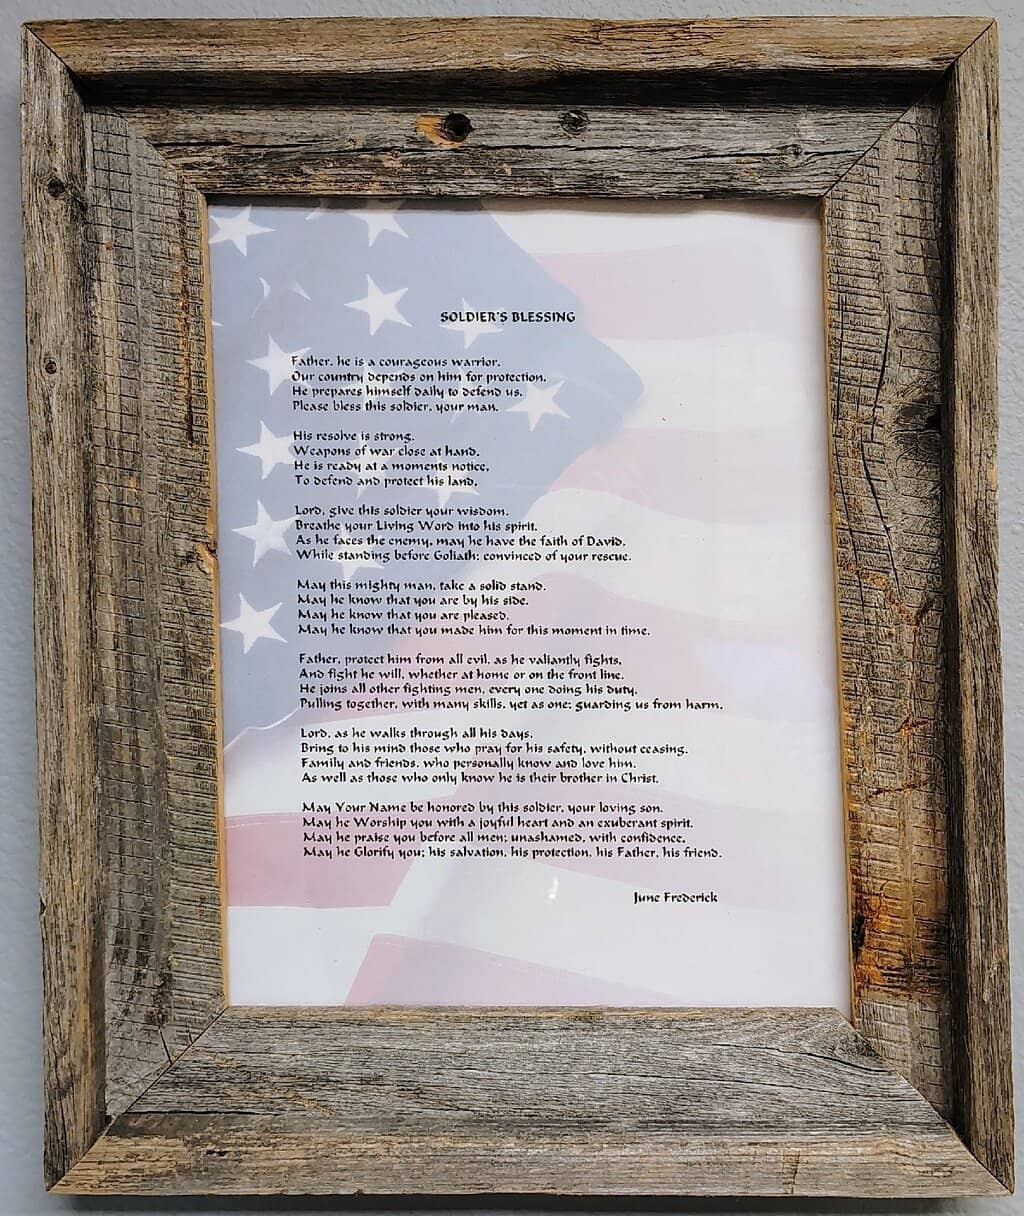 SOLDIER'S BLESSING
Father, he is a courageous warrior.
Our country depends on him for protection.
He prepares himself daily to defend us.
Please bless this soldier, your man.
His resolve is strong.
Weapons of war close at hand.
He is ready at a moments notice,
To defend and protect his land.
Lord, give this soldier your wisdom.
Breathe your Living Word into his spirit.
As he faces the enemy, may he have the faith of David,
While standing before Goliath; convinced of your rescue.
May this mighty man, take a solid stand.
May he know that you are by his side.
May he know that you are pleased.
May he know that you made him for this moment in time.
Father, protect him from all evil, as he valiantly fights,
And fight he will, whether at home or on the front line.
He joins all other fighting men, every one doing his duty.
Pulling together, with many skills, yet as one; guarding us from harm.
Lord, as he walks through all his days,
Bring to his mind those who pray for his safety, without ceasing.
Family and friends, who personally know and love him.
As well as those who only know he is their brother in Christ.
May Your Name be honored by this soldier, your loving son.
May he Worship you with a joyful heart and an exuberant spirit.
May he praise you before all men; unashamed, with confidence.
May he Glorify you; his salvation, his protection, his Father, his friend.
June Frederick